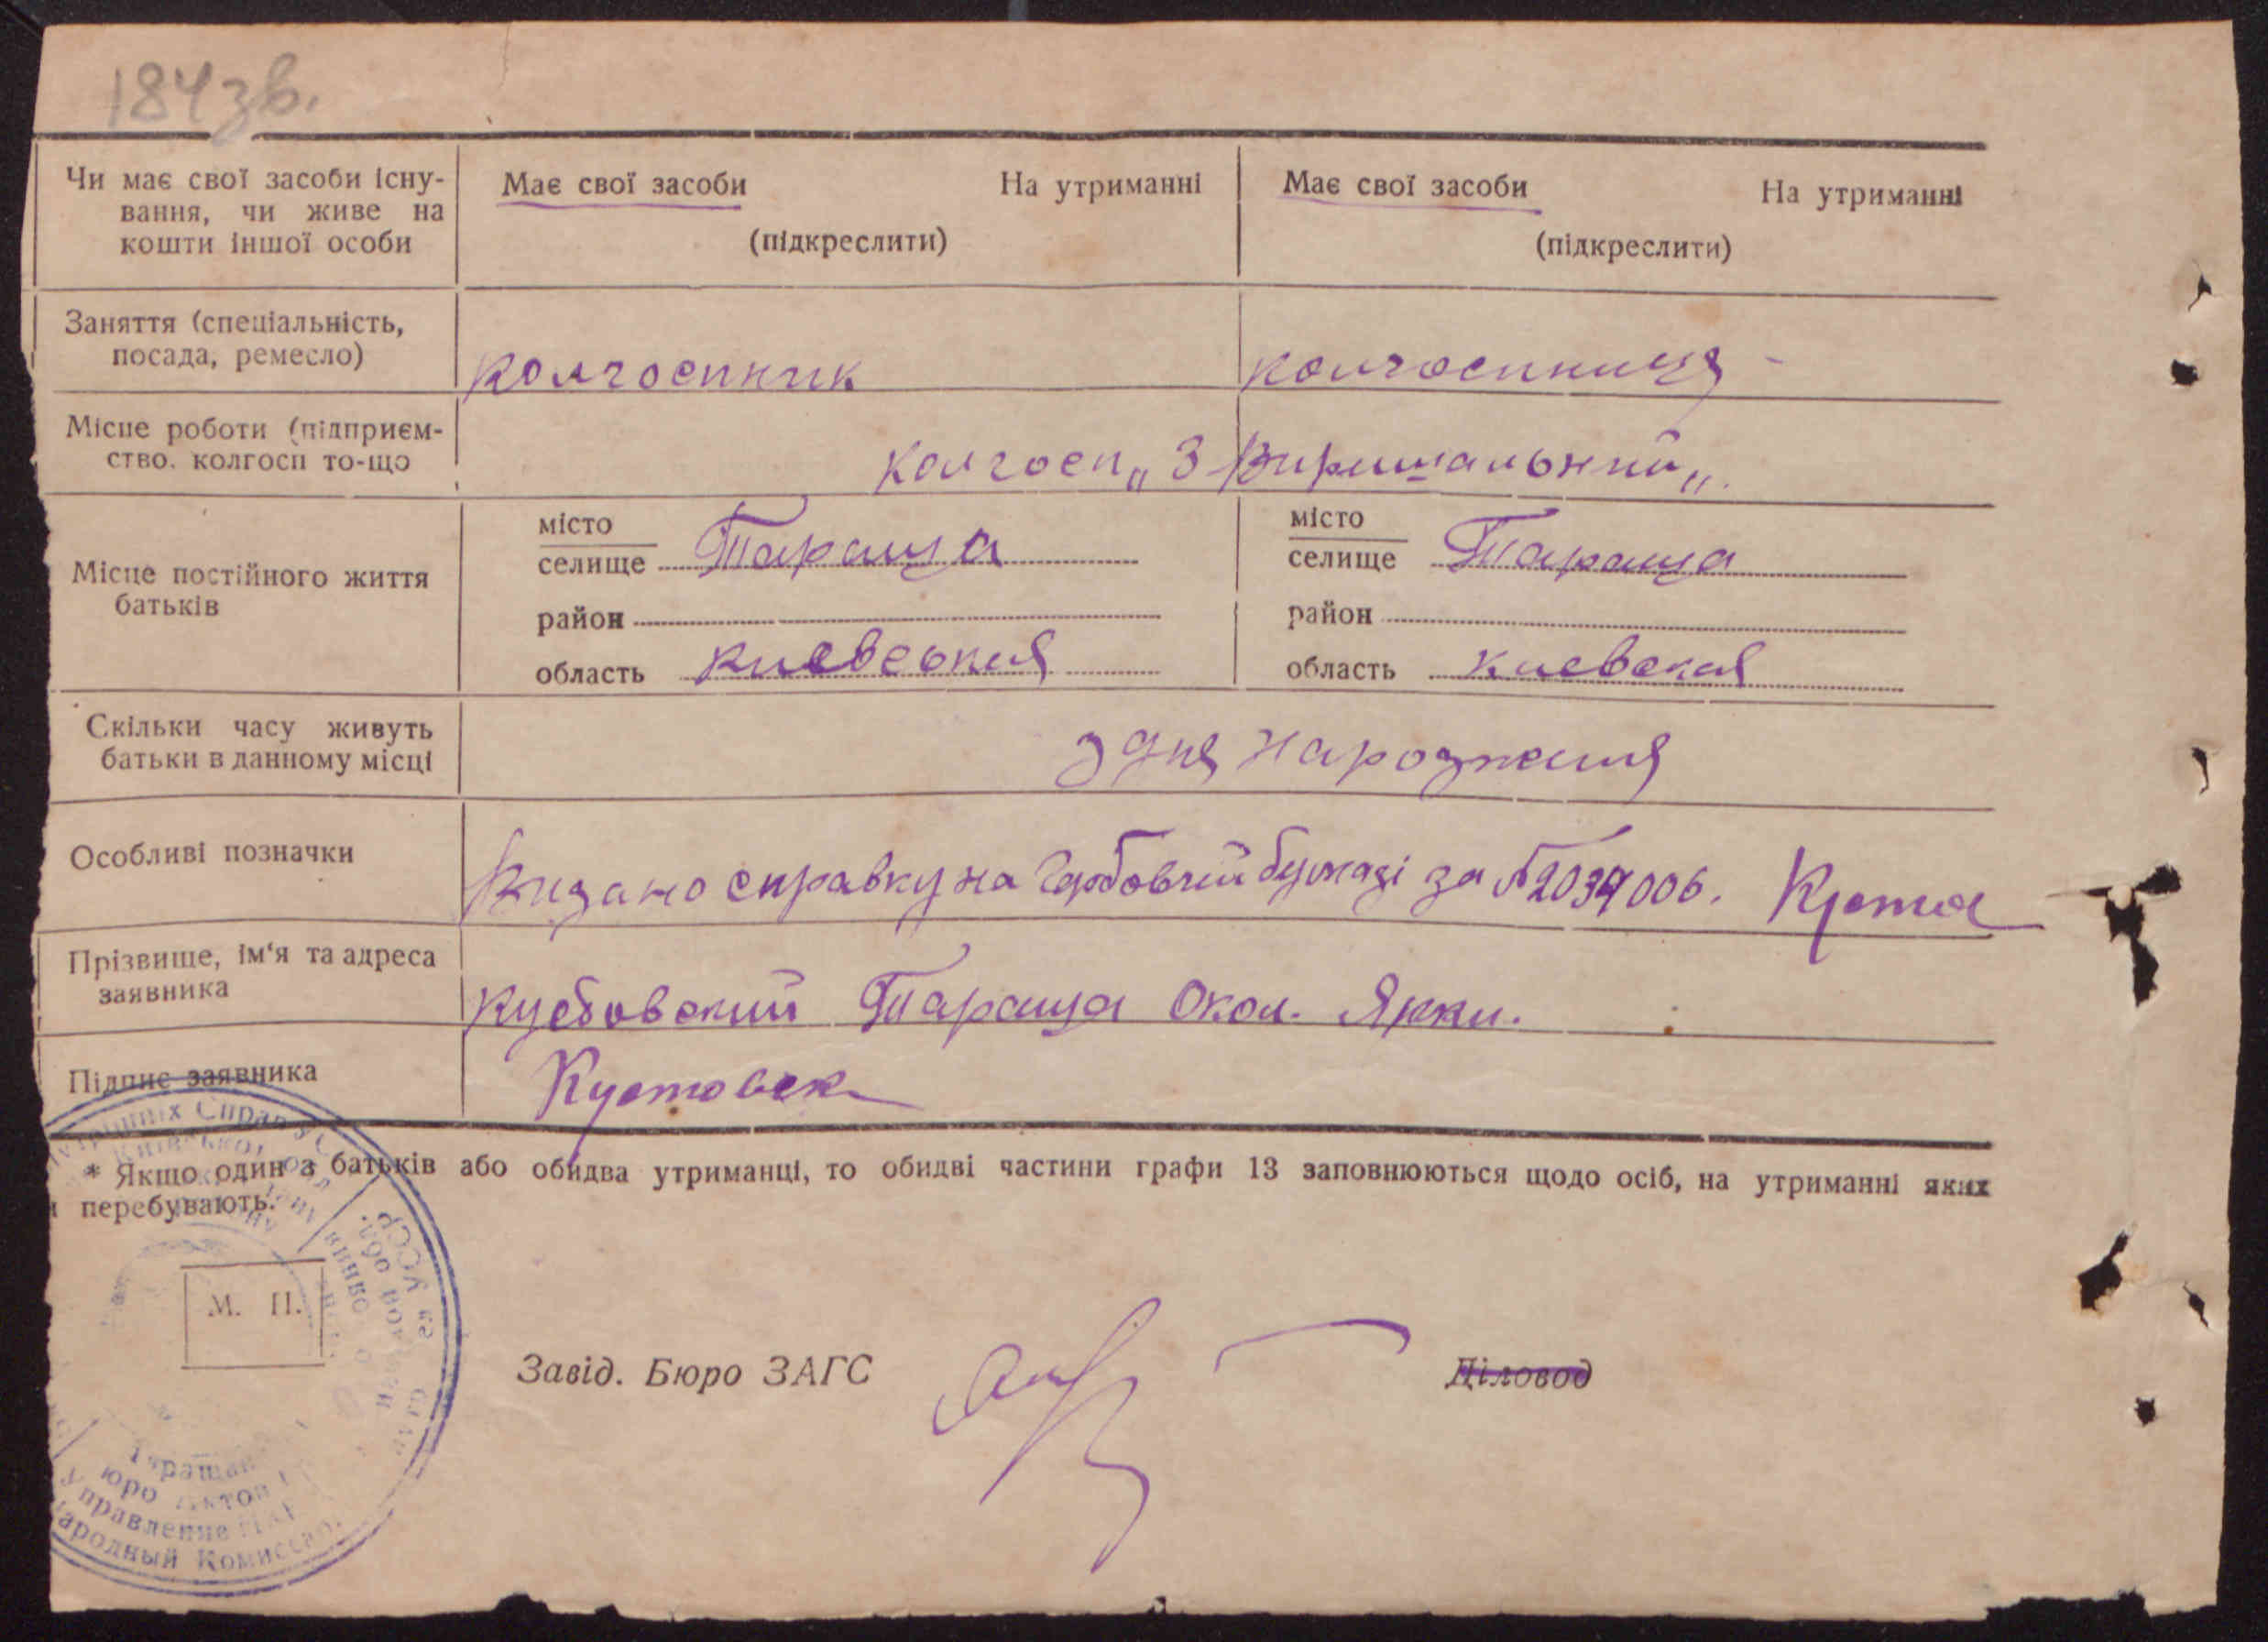 184зв.
Чи має свої засоби існу-
вання, чи живе на
кошти іншої особи
Має свої засоби На утриманні
(підкреслити)
Має свої засоби На утриманні
(підкреслити)
Заняття (спеціальність,
посада, ремесло)
колгоспник
колгоспниця -
Місце роботи (підприєм-
ство. колгосп то-що
колгосп „ 3 Вирішальний „.
Місце постійного життя
батьків
місто
селище Тараща
район
область киевськая
місто
селище Тараща
район
область киевская
Скільки часу живуть
батьки в данному місці
з дня народження
Особливі позначки
Видано справку на гербовий бумазі за №2034006.
Прізвище, ім'я та адреса
заявника
Тараща Окол. Ярки.
Підпис заявника
Кустовск
* Якщо один з батьків або обидва утриманці, то обидві частини графи 13 заповнюються щодо осіб, на утриманні яких
и перебувають.
М. П.
Завід. Бюро ЗАГС
Діловод
Управление
ародный Комисса